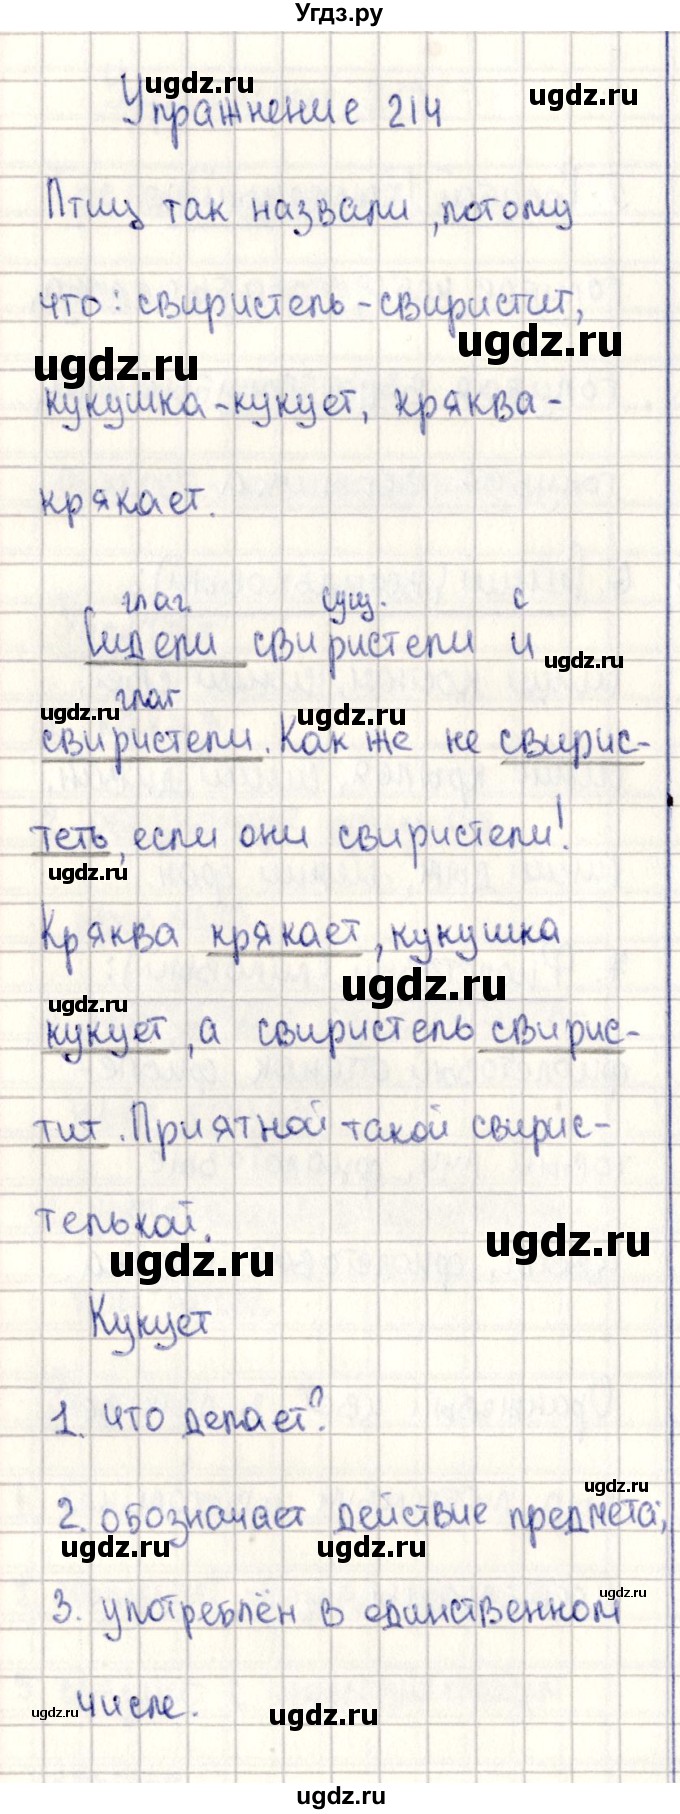 Угдз.ру
ugdz.ru
ugdz.ru
Упражнение 214
Птиц так назвали, потому
что: свиристель-свиристит,
ugdz.ru
ugdz.ru
кукушка-кукует, кряква-
крякает.
глаг. сущ. с
Сидели свиристели и
ugdz.ru
глаг
ugdz.ru
ugdz.ru
свиристели. Как же не свирис-
теть, если они свиристели!
ugdz.ru
Кряква крякает, кукушка
ugdz.ru
ugdz.ru
кукует, а свиристель свирис-
тит. Приятной такой свирис-
телькой.
ugdz.ru
ugdz.ru
Кукует
1. что делает?
ugdz.ru
2. обозначает действие предмета;
ugdz.ru
ugdz.ru
ugdz.ru
3. употреблён в единственном
числе.
ugdz.ru
ugdz.ru
ugdz.ru